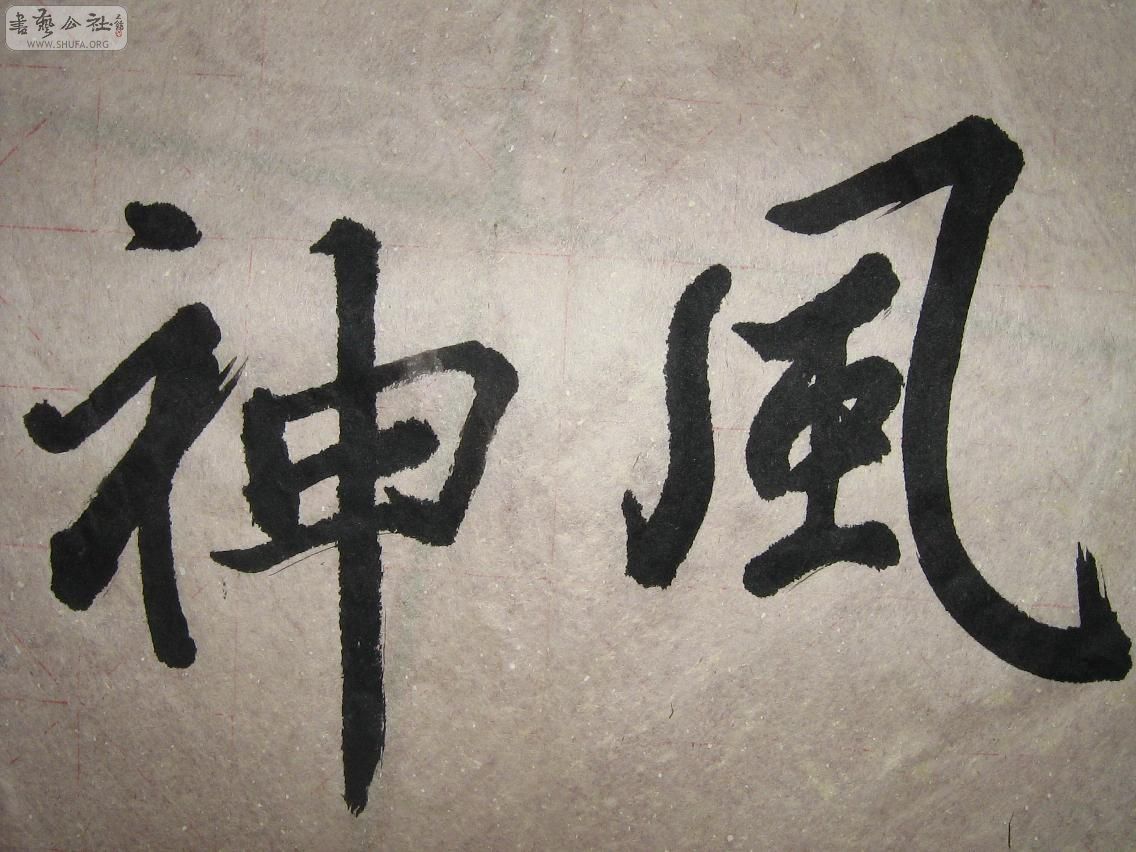 書藝公社
WWW.SHUFA.ORG
風神